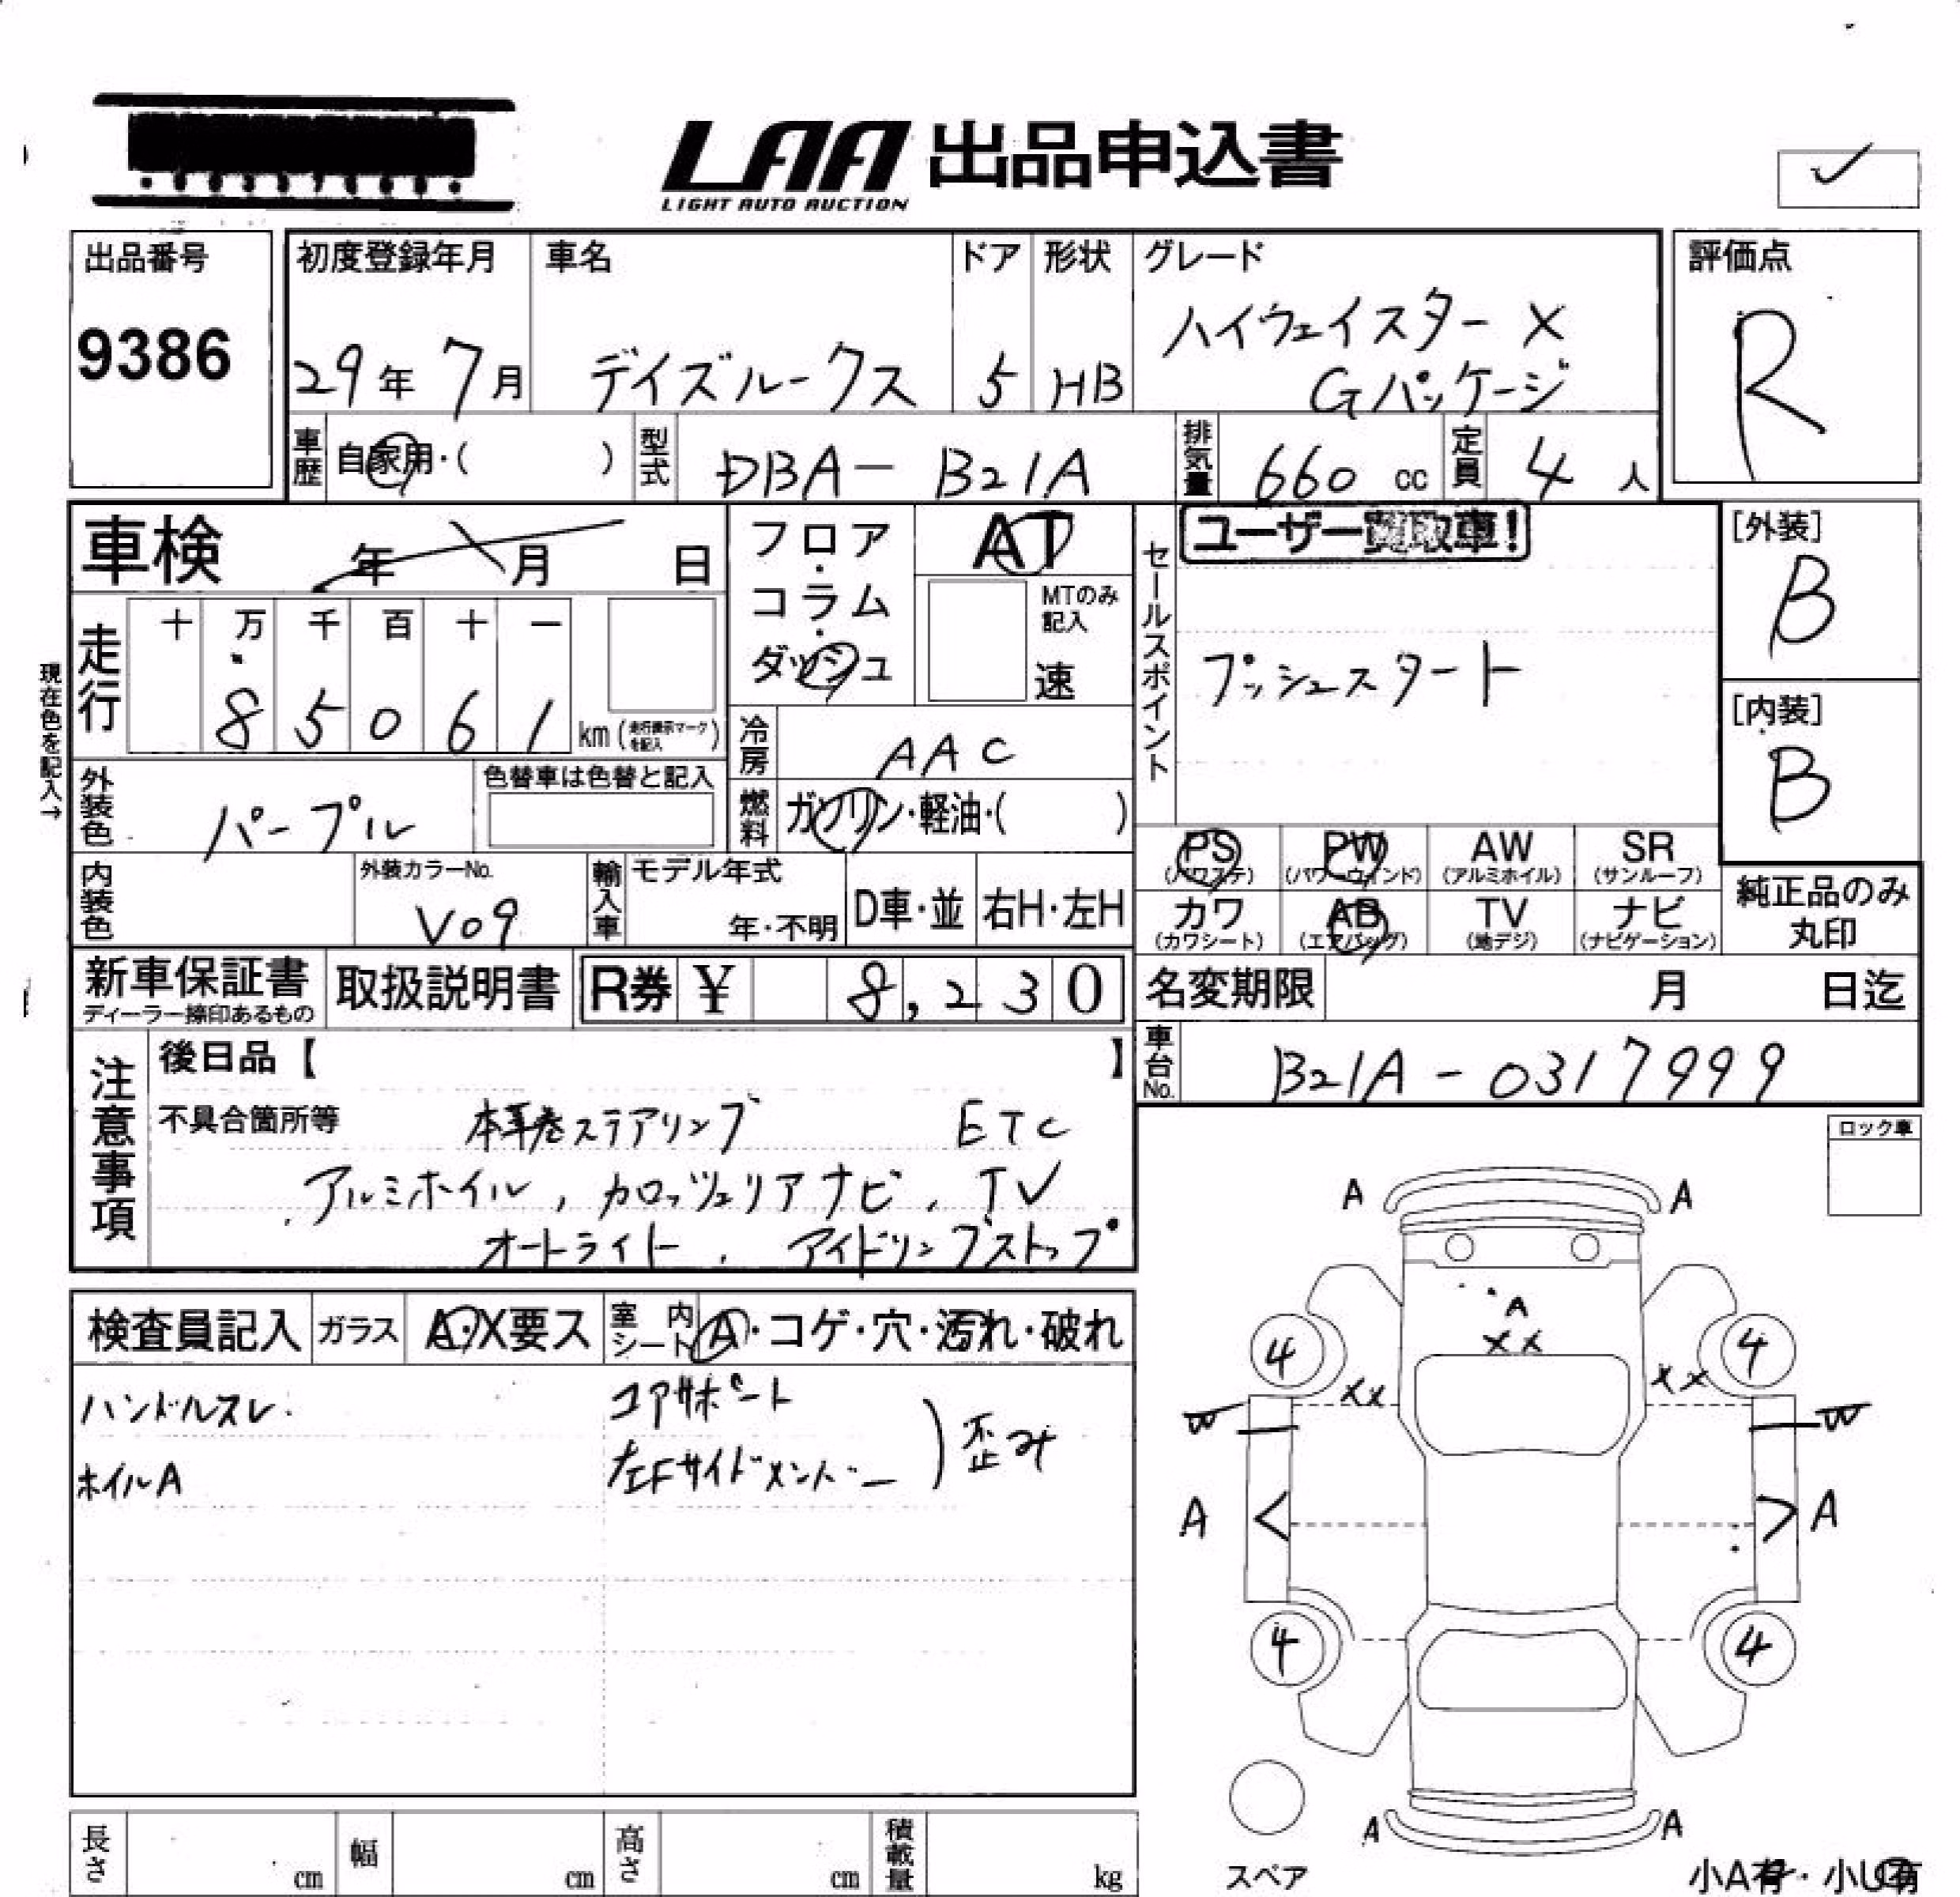 LAA 出品申込書
LIGHT AUTO AUCTION
出品番号
9386
初度登録年月
29年 7月
車名
デイズルークス
ドア
5
形状
HB
グレード
ハイウェイスター X
Gパッケージ
評価点
R
車歴
自家用・( )
型式
DBA- B21A
排気量
660 cc
定員
4 人
車検 年 月 日
フロア・コラム・ダッシュ
AT
MTのみ記入
速
セールスポイント
ユーザー買取車!
プッシュスタート
[外装]
B
[内装]
B
現在色を記入→
走行
十 万 千 百 十 一
8 5 0 6 1 km (走行表示マークを記入)
冷房
AAC
外装色
パープル
色替車は色替と記入
燃料
ガソリン・軽油・( )
内装色
外装カラーNo.
V09
輸入車
モデル年式
年・不明
D車・並
右H・左H
PS (パワステ)
PW (パワーウインド)
AW (アルミホイル)
SR (サンルーフ)
カワ (カワシート)
AB (エアバッグ)
TV (地デジ)
ナビ (ナビゲーション)
純正品のみ
丸印
新車保証書
ディーラー捺印あるもの
取扱説明書
R券 ¥ 8,230
名変期限 月 日迄
車台No.
B21A-0317999
注意事項
後日品【 】
不具合箇所等
本革巻ステアリング ETC
アルミホイル, カロッツェリアナビ, TV
オートライト, アイドリングストップ
ロック車
検査員記入
ガラス
A・X要ス
室内シート
A・コゲ・穴・汚れ・破れ
ハンドルスレ
ホイルA
コアサポート
左Fサイドメンバー
) 歪み
A A
A
XX
4 4
XX XX
W W
A A
4 4
A A
スペア
小A有・小U有
長さ cm
幅 cm
高さ cm
積載量 kg